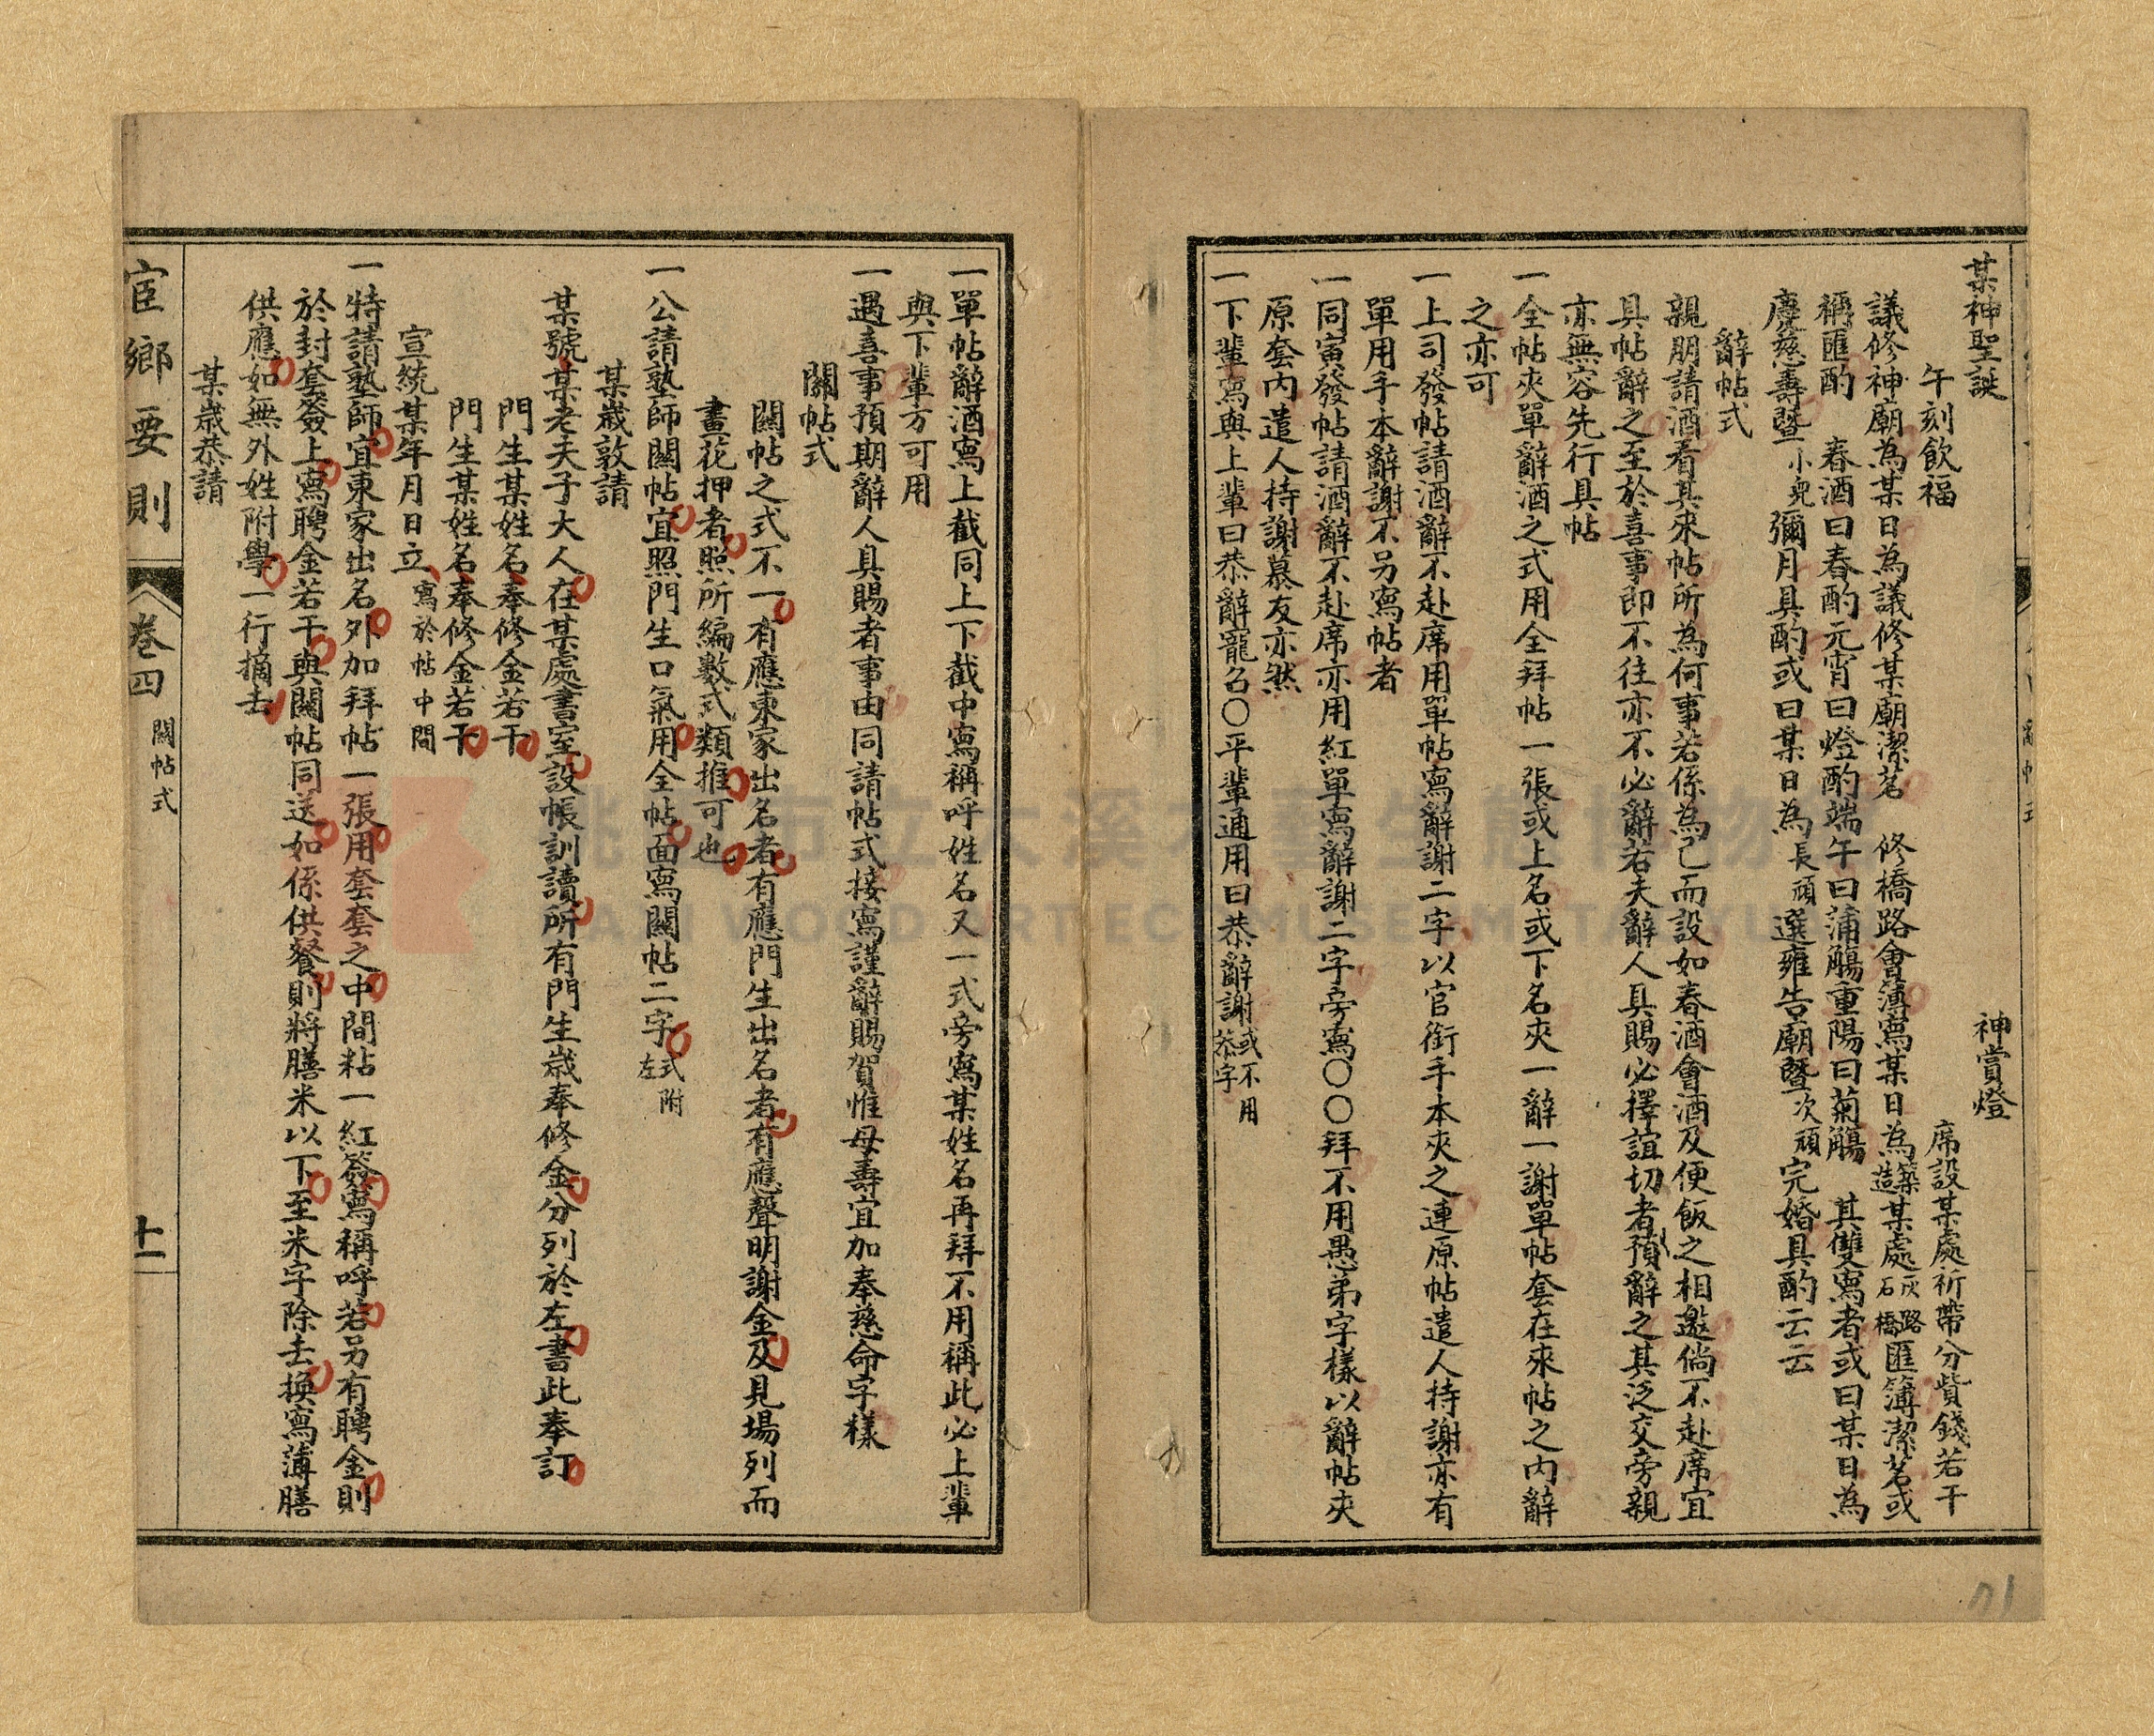 某神聖誕　神賞燈
午刻飲福　席設某處祈帶分貲錢若干
議修神廟為某日為議修某廟潔茗　修橋路會簿寫某日為築造某處灰路石橋匯簿潔茗或
稱匯酌　春酒曰春酌元宵曰燈酌端午曰蒲觴重陽曰菊觴　其雙寫者或曰某日為
慶慈壽暨小兒彌月具酌或曰某日為長頑選雍告廟暨次頑完婚具酌云云
辭帖式
親朋請酒看其來帖所為何事若係為己而設如春酒會酒及便飯之相邀倘不赴席宜
具帖辭之至於喜事即不往亦不必辭若夫辭人具賜必擇誼切者預辭之其泛交旁親
亦無容先行具帖
一全帖夾單辭酒之式用全拜帖一張或上名或下名夾一辭一謝單帖套在來帖之內辭
之亦可
一上司發帖請酒辭不赴席用單帖寫辭謝二字以官銜手本夾之連原帖遣人持謝亦有
單用手本辭謝不另寫帖者
一同寅發帖請酒辭不赴席亦用紅單寫辭謝二字旁寫〇〇拜不用愚弟字樣以辭帖夾
原套內遣人持謝慕友亦然
一下輩寫與上輩曰恭辭寵召〇平輩通用曰恭辭謝或不用恭字
一單帖辭酒寫上截同上下截中寫稱呼姓名又一式旁寫某姓名再拜不用稱此必上輩
與下輩方可用
一遇喜事預期辭人具賜者事由同請帖式接寫謹辭賜賀惟母壽宜加奉慈命字樣
關帖式
關帖之式不一有應東家出名者有應門生出名者有應聲明謝金及見場列而
畫花押者照所編數式類推可也
一公請塾師關帖宜照門生口氣用全帖面寫關帖二字式附左
某歲敦請
某號某老夫子大人在某處書室設帳訓讀所有門生歲奉修金分列於左書此奉訂
門生某姓名奉修金若干
門生某姓名奉修金若干
宣統某年月日立寫於帖中間
一特請塾師宜東家出名外加拜帖一張用套套之中間粘一紅簽寫稱呼若另有聘金則
於封套簽上寫聘金若干與關帖同送如係供餐則將膳米以下至米字除去換寫薄膳
供應如無外姓附學一行摘去
某歲恭請
宦鄉要則
卷四
關帖式
十一
71